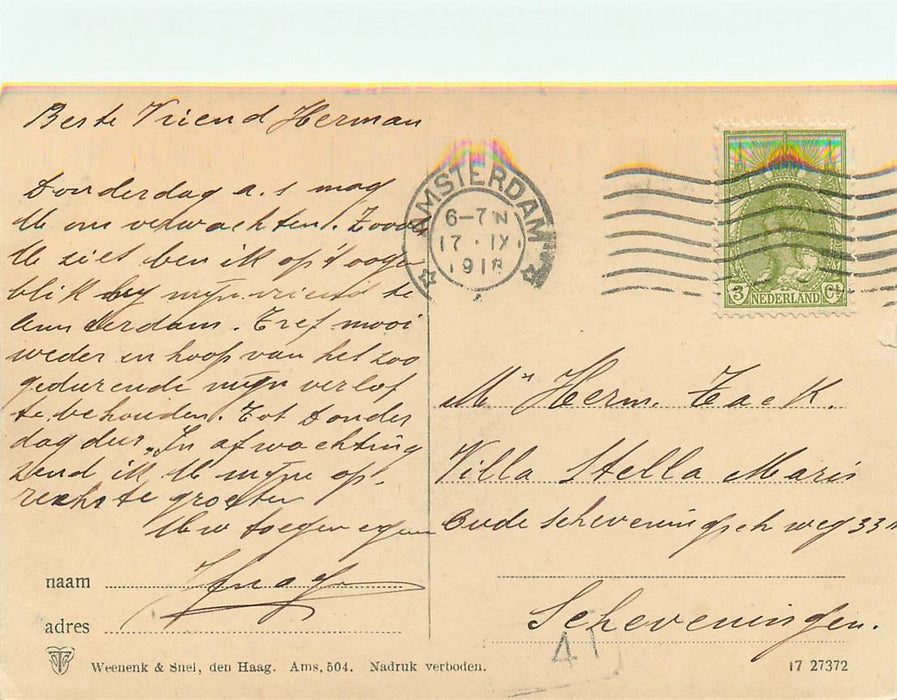 Beste Vriend Herman
Donderdag a.s mag
U ons verwachten. Zooals
U ziet ben ik op 't oogen
blik by mijn vriend te
Amsterdam. Tref mooi
weder en hoop van het zoo
gedurende mijn verlof
te behouden. Tot Donder
dag dus. In afwachting
zend ik U mijne op-
rechte groeten
Uw toegenegen
naam
adres
Weenenk & Snel, den Haag. Ams. 504. Nadruk verboden.
AMSTERDAM
6-7N
17.IX
1918
3 NEDERLAND Ct
Mr Herm. Zack.
Villa Stella Maris
Oude Scheveningsch weg 33
Scheveningen.
41
17 27372